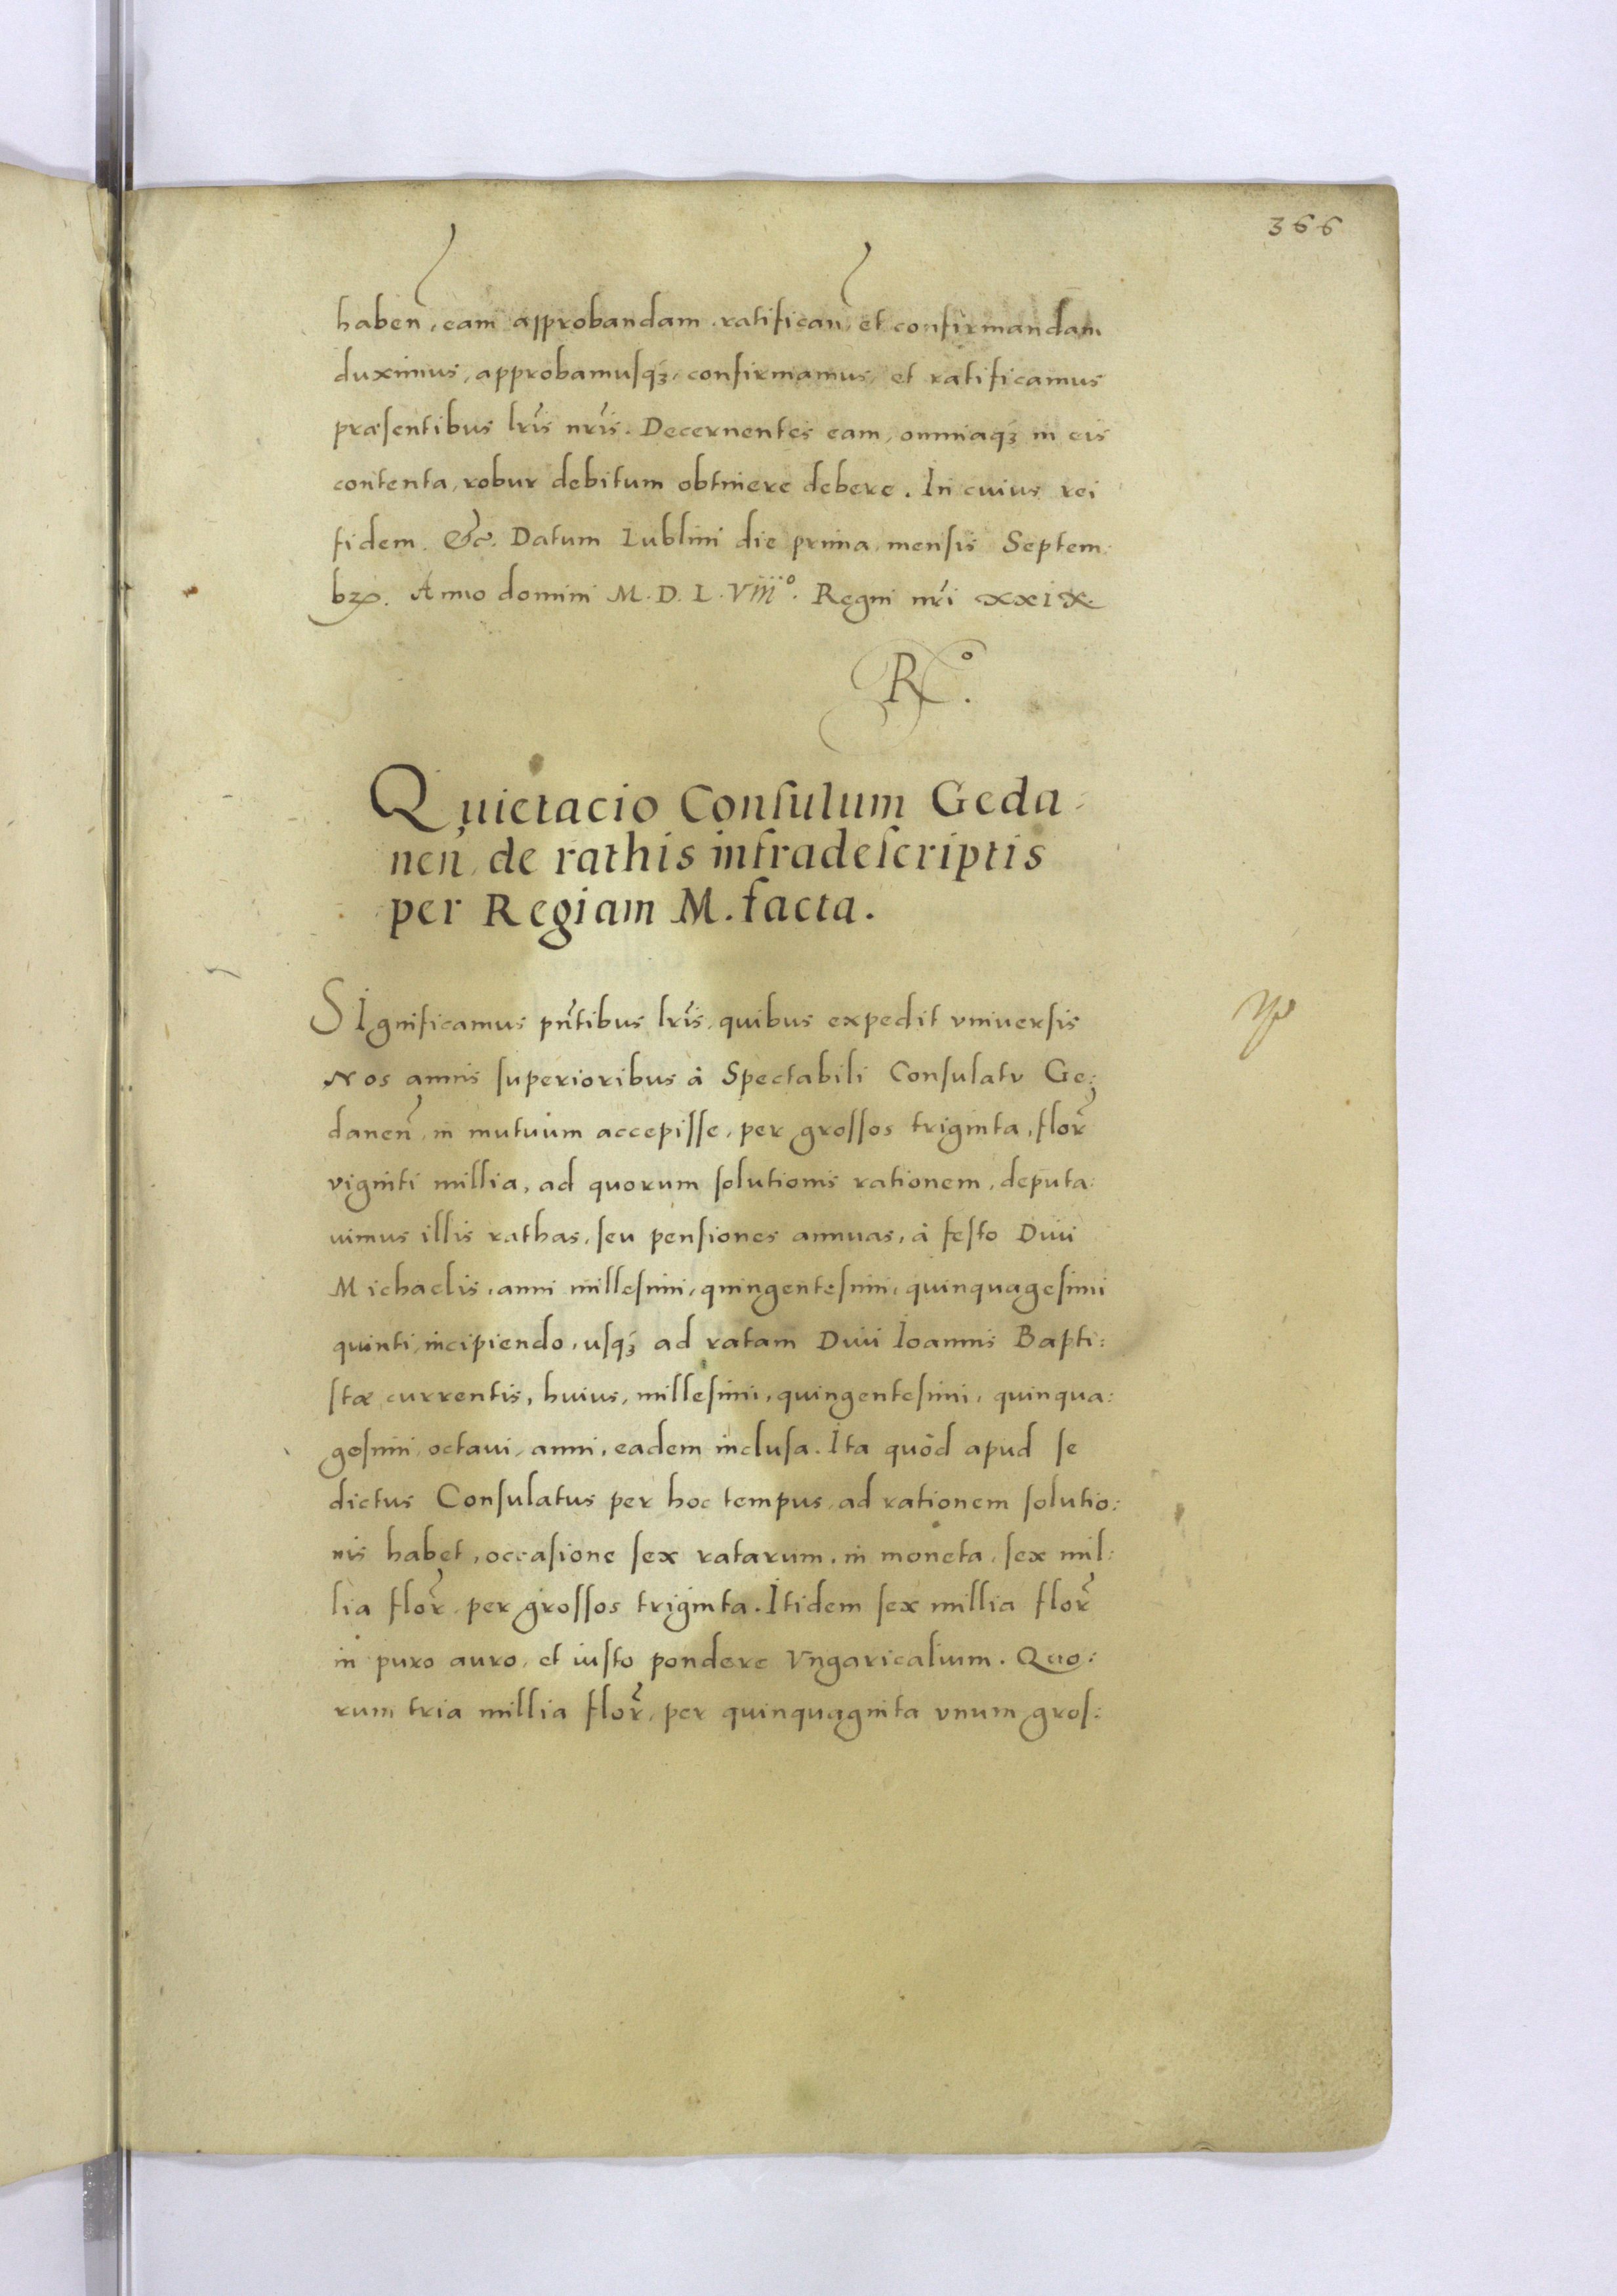 366
haben̄, eam approbandam, ratifican̄, et confirmandam
duximus, approbamusqꝫ, confirmamus, et ratificamus
præsentibus lr̃is nr̃is. Decernentes eam, omniaqꝫ in eis
contenta, robur debitum obtinere debere. In cuius rei
fidem. &c. Datum Lublini die prima, mensis Septem:
bꝝ. Anno domini M.D.L.Viijº. Regni nr̃i xxix.
Rº.
Quietacio Consulum Geda:
nen̄, de rathis infradescriptis
per Regiam M. facta.
SIgnificamus pn̄tibus lr̃is, quibus expedit vniuersis
Nos annis superioribus à Spectabili Consulatu Ge:
danen̄, in mutuum accepisse, per grossos triginta, flor̃
viginti millia, ad quorum solutionis rationem, deputa:
uimus illis rathas, seu pensiones annuas, à festo Diui
Michaelis, anni millesimi, quingentesimi, quinquagesimi
quinti, incipiendo, usqꝫ ad ratam Diui Ioannis Bapti:
stæ currentis, huius, millesimi, quingentesimi, quinqua:
gesimi, octaui, anni, eadem inclusa. Ita quòd apud se
dictus Consulatus per hoc tempus, ad rationem solutio:
nis habet, occasione sex ratarum, in moneta, sex mil:
lia flor̃, per grossos triginta. Itidem sex millia flor̃
in puro auro, et iusto pondere Vngaricalium. Quo:
rum tria millia flor̃, per quinquaginta vnum gros: